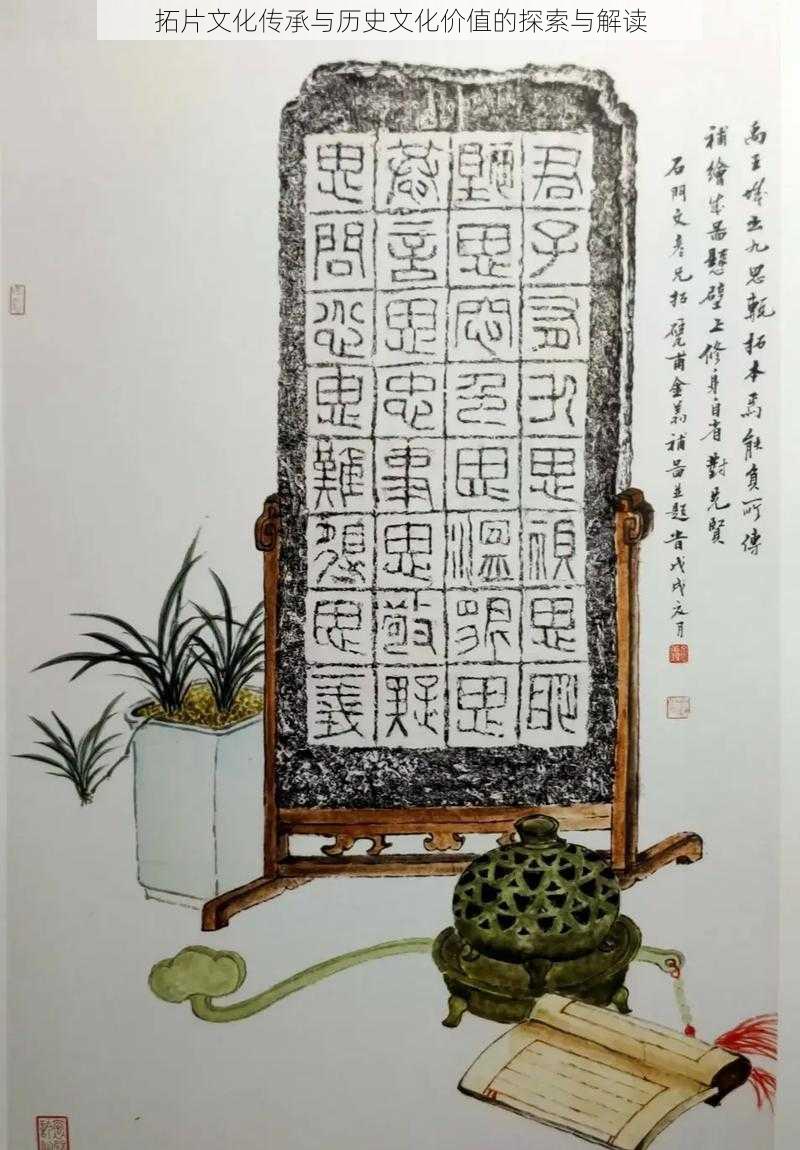 拓片文化传承与历史文化价值的探索与解读
君子有九思視思明
聽思悤色思溫貌思
恭言思忠事思敬疑
思問忿思難得思義
禹王城出九思甎拓本焉能負所傳
補繪成圖懸壁上修身自省對先賢
石門文彥兄拓甓甫金補圖並題旹戊戌夏月